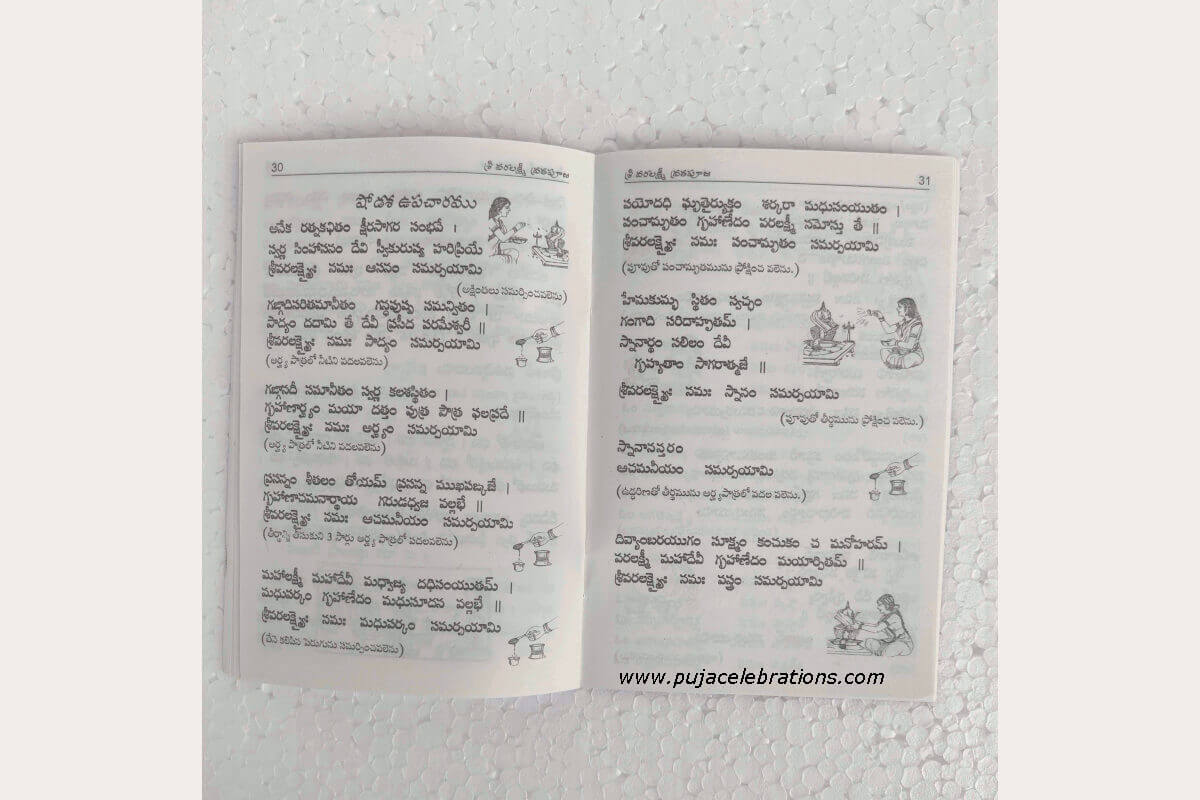 30
శ్రీ వరలక్ష్మీ వ్రతపూజ
షోడశ ఉపచారము
అనేక రత్నకచితం క్షీరసాగర సంభవే ।
స్వర్ణ సింహాసనం దేవీ స్వీకురుష్వ హరిప్రియే
శ్రీవరలక్ష్మ్యైః నమః ఆసనం సమర్పయామి
(అక్షింతలు సమర్పించవలెను)
గఙ్గాదిసరితమానీతం గన్ధపుష్ప సమన్వితం ।
పాద్యం దదామి తే దేవీ ప్రసీద పరమేశ్వరీ ॥
శ్రీవరలక్ష్మ్యైః నమః పాద్యం సమర్పయామి
(అర్ఘ్య పాత్రలో నీటిని వదలవలెను)
గఙ్గానదీ సమానీతం స్వర్ణ కలశస్థితం ।
గృహాణార్ఘ్యం మయా దత్తం పుత్ర పౌత్ర ఫలప్రదే ॥
శ్రీవరలక్ష్మ్యైః నమః అర్ఘ్యం సమర్పయామి
(అర్ఘ్య పాత్రలో నీటిని వదలవలెను)
ప్రసన్నం శీతలం తోయమ్ ప్రసన్న ముఖపఙ్కజే ।
గృహాణాచమనార్థాయ గరుడధ్వజ వల్లభే ॥
శ్రీవరలక్ష్మ్యైః నమః ఆచమనీయం సమర్పయామి
(తీర్థాన్ని తీసుకుని 3 సార్లు అర్ఘ్య పాత్రలో వదలవలెను)
మహాలక్ష్మీ మహాదేవీ మధ్వాజ్య దధిసంయుతమ్ ।
మధుపర్కం గృహాణేదం మధుసూదన వల్లభే ॥
శ్రీవరలక్ష్మ్యైః నమః మధుపర్కం సమర్పయామి
(తేనె కలిపిన పెరుగును సమర్పించవలెను)
శ్రీ వరలక్ష్మీ వ్రతపూజ
31
పయోదధి ఘృతైర్యుక్తం శర్కరా మధుసంయుతం ।
పంచామృతం గృహాణేదం వరలక్ష్మీ నమోస్తు తే ॥
శ్రీవరలక్ష్మ్యైః నమః పంచామృతం సమర్పయామి
(పూవుతో పంచామృతమును ప్రోక్షించ వలెను.)
హేమకుమ్భ స్థితం స్వచ్ఛం
గంగాది సరిదాహృతమ్ ।
స్నానార్థం సలిలం దేవీ
గృహ్యతాం సాగరాత్మజే ॥
శ్రీవరలక్ష్మ్యైః నమః స్నానం సమర్పయామి
(పూవుతో తీర్థమును ప్రోక్షించ వలెను.)
స్నానానన్తరం
ఆచమనీయం సమర్పయామి
(ఉద్ధరిణతో తీర్థమును అర్ఘ్యపాత్రలో వదల వలెను.)
దివ్యాంబరయుగం సూక్ష్మం కంచుకం చ మనోహరమ్ ।
వరలక్ష్మీ మహాదేవీ గృహాణేదం మయార్పితమ్ ॥
శ్రీవరలక్ష్మ్యైః నమః వస్త్రం సమర్పయామి
www.pujacelebrations.com